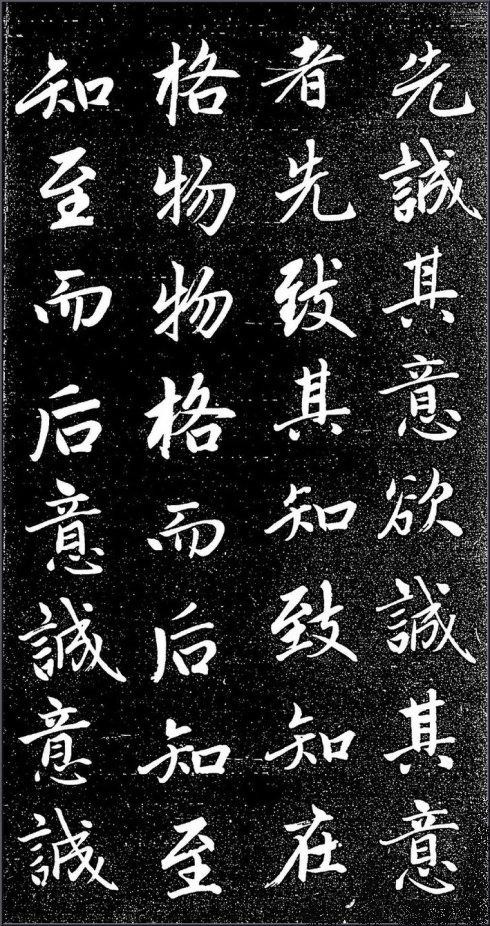 先誠其意欲誠其意
者先致其知致知在
格物物格而后知至
知至而后意誠意誠